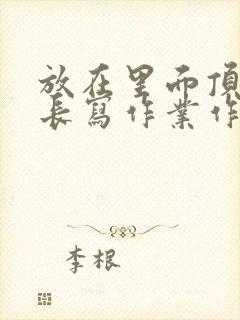 放在里而頂
長寫作業作
李根